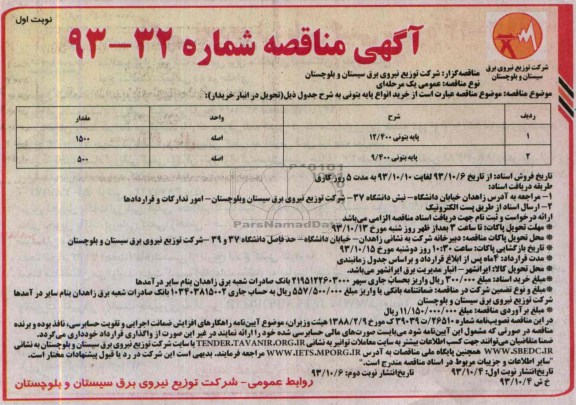 نوبت اول
آگهی مناقصه شماره ۳۲-۹۳
شرکت توزیع نیروی برق
سیستان و بلوچستان
مناقصه‌گزار: شرکت توزیع نیروی برق سیستان و بلوچستان
نوع مناقصه: عمومی یک مرحله‌ای
موضوع مناقصه: موضوع مناقصه عبارت است از خرید انواع پایه بتونی به شرح جدول ذیل(تحویل در انبار خریدار):
ردیف شرح واحد مقدار
۱ پایه بتونی ۱۲/۴۰۰ اصله ۱۵۰۰
۲ پایه بتونی ۹/۴۰۰ اصله ۵۰۰
تاریخ فروش اسناد: از تاریخ ۹۳/۱۰/۶ لغایت ۹۳/۱۰/۱۰ به مدت ۵ روز کاری
طریقه دریافت اسناد:
۱- مراجعه به آدرس زاهدان خیابان دانشگاه- نبش دانشگاه ۳۷- شرکت توزیع نیروی برق سیستان وبلوچستان- امور تدارکات و قراردادها
۲- ارسال اسناد از طریق پست الکترونیک
ارائه درخواست و ثبت نام جهت دریافت اسناد مناقصه الزامی می‌باشد
* مهلت تحویل پاکات: تا ساعت ۳ بعداز ظهر روز شنبه مورخ ۹۳/۱۰/۱۳
* محل تحویل پاکات مناقصه: دبیرخانه شرکت به نشانی زاهدان- خیابان دانشگاه- حد فاصل دانشگاه ۳۷ و ۳۹ -شرکت توزیع نیروی برق سیستان و بلوچستان
* تاریخ بازگشایی پاکات: ساعت ۱۰:۳۰ روز دوشنبه مورخ ۹۳/۱۰/۱۵
* مدت قرارداد: ۴ماه پس از ابلاغ قرارداد و براساس جدول زمانبندی
* محل تحویل کالا: ایرانشهر- انبار مدیریت برق ایرانشهر می‌باشد.
* مبلغ خرید اسناد: مبلغ ۳۰۰/۰۰۰ ریال واریز بحساب جاری سپهر ۲۱۹۵۱۲۲۶۰۳۰۰۰ بانک صادرات شعبه برق زاهدان بنام سایر درآمدها
* مبلغ و نوع تضمین شرکت در مناقصه: ضمانتنامه بانکی یا واریز مبلغ ۵۵۷/۵۰۰/۰۰۰ ریال به حساب جاری ۱۰۳۴۰۳۸۱۵۰۰۲ بانک صادرات شعبه برق زاهدان بنام سایر در آمدها
شرکت توزیع نیروی برق سیستان و بلوچستان
* مبلغ برآوردی مناقصه: مبلغ ۱۱/۱۵۰/۰۰۰/۰۰۰ ریال می‌باشد
در این مناقصه تصویب‌نامه شماره ۲۶۵۱۰/ت ۳۹۰۳۹ک مورخ ۱۳۸۸/۲/۹ هیئت وزیران، موضوع آیین‌نامه راهکارهای افزایش ضمانت اجرایی و تقویت حسابرسی، نافذ بوده و برنده
مناقصه در صورتی که مشمول این آیین‌نامه شود می‌بایست صورت‌های مالی حسابرسی شده خود را ارائه نمایند در غیر این صورت از واگذاری قرارداد خودداری می‌گردد.
ضمنا متقاضیان می‌توانند جهت کسب اطلاعات بیشتر به سایت معاملات توانیر به نشانی TENDER.TAVANIR.ORG.IR یا سایت شرکت توزیع نیروی برق سیستان و بلوچستان به نشانی
WWW.SBEDC.IR همچنین پایگاه ملی مناقصات به آدرس WWW.IETS.MPORG.IR مراجعه فرمایند. بدیهی است این شرکت در رد یا قبول پیشنهادات مختار است.
"سایر اطلاعات و جزییات مربوط در اسناد مناقصه مندرج است."
تاریخ انتشار نوبت اول: ۹۳/۱۰/۴ تاریخ انتشار نوبت دوم: ۹۳/۱۰/۶
خ ش ۹۳/۱۰/۴
روابط عمومی- شرکت توزیع نیروی برق سیستان و بلوچستان
ParsNamadData